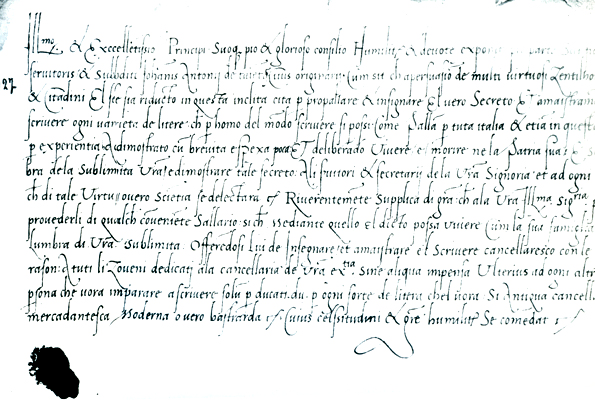 Ill.mo & Excellentissio Principi Suoq pio & glorioso consilio Humilit & devote
servitoris & Subditi Antonij de Civis originarij Cum sit ch apersuasio de multi virtuosi Zentilho
27
& Citadini El sie sta riducto in questa inclita cita p propallare & insignare El vero Secreto
scrivere ogni varieta de litere ch p homo del modo scrivere si possi: come Palla p tuta italia & etia in questa
p experientia dimostrato cu brevita e deliberado Vivere e morire ne la Patria sua
bra de la Sublimita Vra e dimostrare tale secreto. fautori & secretarij de la Vra Signoria et ad ogni
ch di tale Virtu overo Scietia se delectara Riverentemete Supplica di gra ch ala Vra Ill.ma Sig.ria
provederli di qualch coveniete Sallario: si ch Mediante quello el dicto possa vivere Cum la sua famiglia
lumbra di Vra Sublimita Offerendosi Lui de Insegnare et amaistrare el Scrivere cancellaresco con le
rason: a tuti li Zoveni dedicati alla cancellaria de Vra Sine aliqua impensa Ulterius ad ogni altra
psona che vora imparare a scrivere solu p ducati du p ogni sorte de litera chel vora Si Antiqua cancell
mercadantesca Moderna o vero bastarda Cuius celsitudini & gre humilit Se comedat